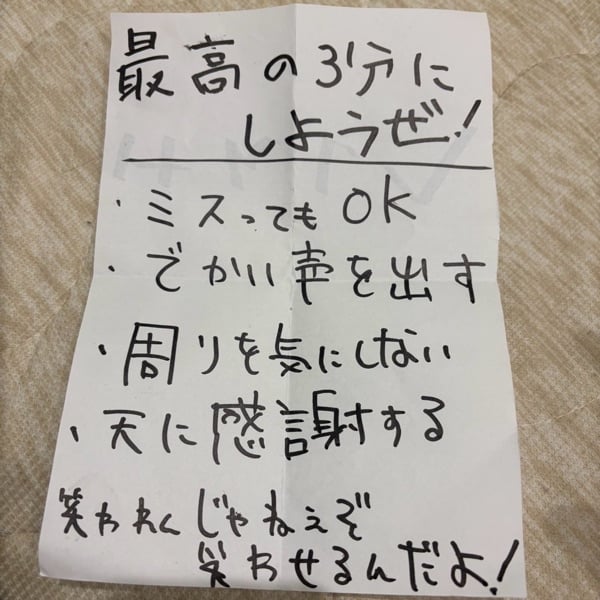 最高の3分に
しようぜ!
・ミスっても OK
・でかい声を出す
・周りを気にしない
・天に感謝する
笑われんじゃねえぞ
笑わせるんだよ!